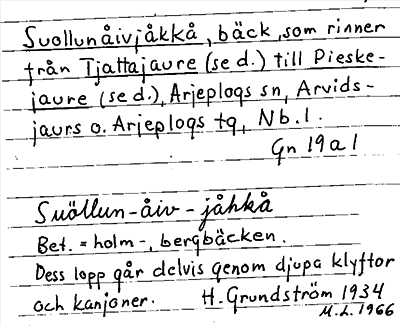 Suollunåivjåkkå, bäck, som rinner
från Tjattajaure (se d.) till Pieske-
jaure (se d.), Arjeplogs sn, Arvids-
jaurs o. Arjeplogs tg, Nb. l.
Gn 19 a 1
Suöllun-åiv-jåhkå
Bet. = holm-, bergbäcken.
Dess lopp går delvis genom djupa klyftor
och kanjoner. H. Grundström 1934
M.L. 1966